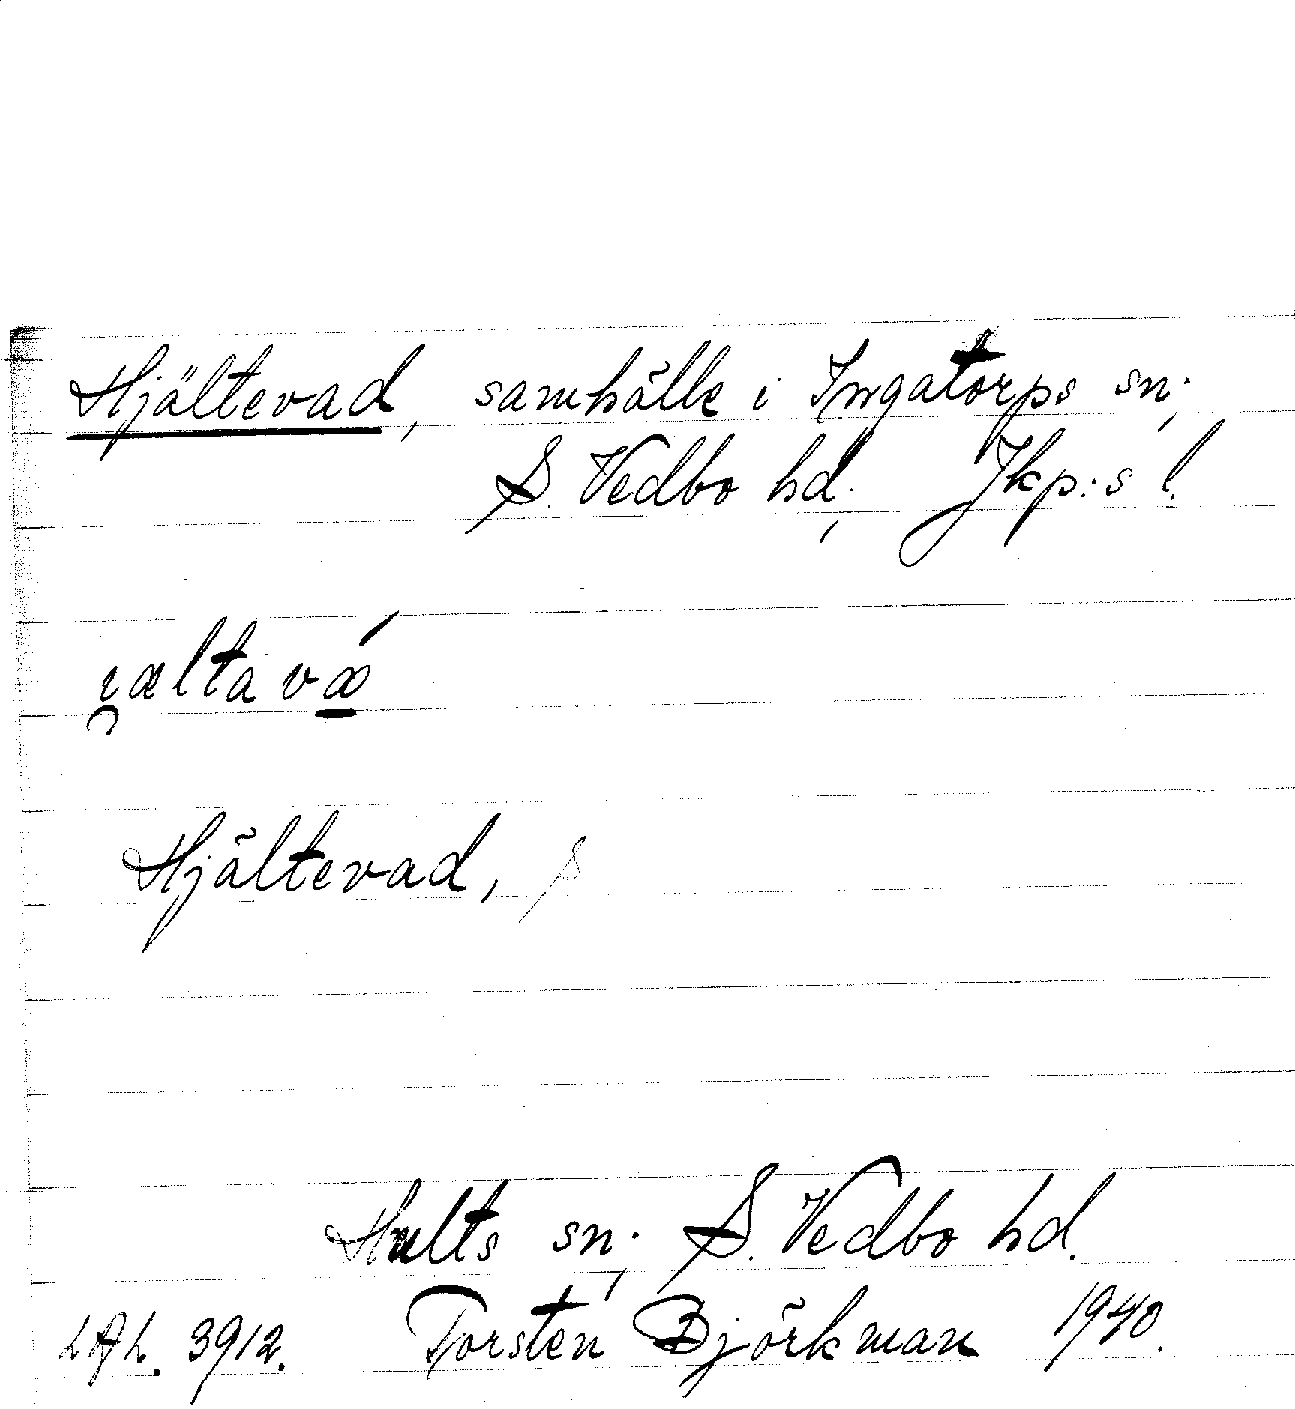 Hjältevad, samhälle i Ingatorps sn.,
S. Vedbo hd., Jkp:s l.
Hjältevad,
Hults sn., S. Vedbo hd.
LAL. 3912. Torsten Björkman 1940.